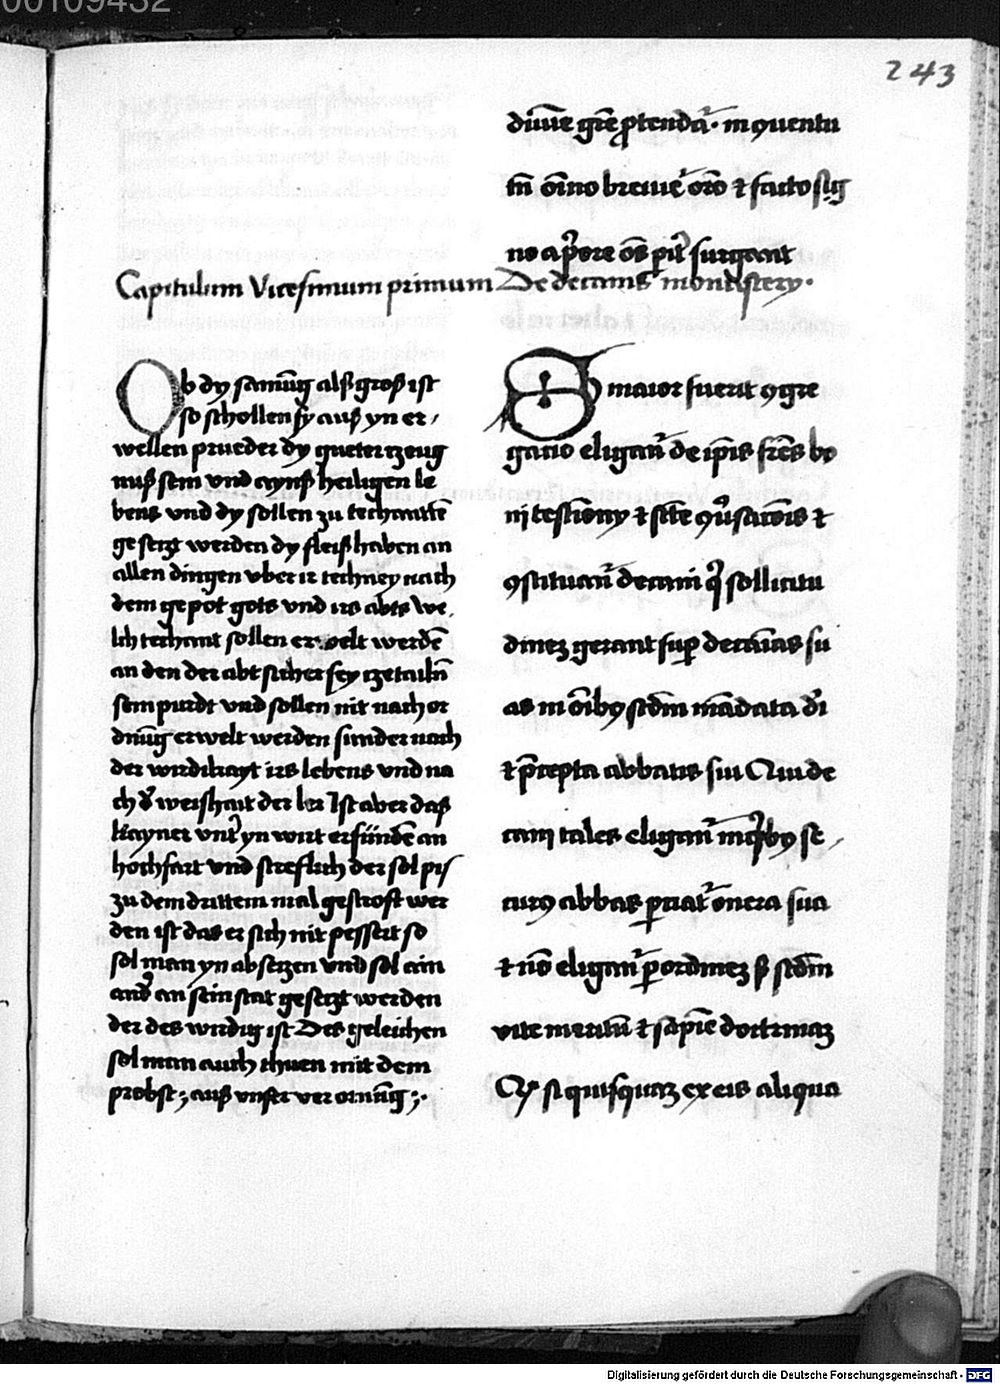 00109432
243
diuīe gr̄e ꝓtendāꝰ · in ꝯuentu
tn̄ oīno breuieꝰ orō ⁊ facto sig
no a pͥore oēs pit̉ surgant
Capitulum Vicesimum primum De decanis monastery ·
Ob dy samūg alß groß ist
so schollen sy auß yn er ,
wellen prueder dy gueter tzeug
nuß sein vnd aynß heiligen le
bens vnd dy sollen zu techantē
gesetzt werden dy fleiß haben an
allen dingen vber ir techney nach
dem gepot gots vnd irs abts We ,
lich techant sollen erwelt werdē
an den der abt sicher sey tzetailn̄
sein purdt vnd sollen nit nach or
dnūg erwelt werden sunder nach
der wirdikayt irs lebens vnd na
ch d̉ weishait der ler Ist aber daß
kayner vnt̉ yn wirt erfundē an
hochfart vnd streflich der sol pis
zu dem drittem mal gestroft wer
den ist das er sich nit pessert so
sol man yn absetzen vnd sol ain
and̉ an sein stat gesetzt werden
der des wirdig ist Des geleichen
sol man auch thuen mit dem
probst ; auß vnser verornūg ; ·
Si maior fuerit ꝯgre
gatio eligant̉ de ip̄is fr̄es bo
ni testiony ⁊ sc̄te ꝯu̓satōis ⁊
ꝯstituant̉ decani qͥ sollicitu
dinez gerant suꝑ decanias su
as in oībꝰ scd̄m mādata dī
⁊ p̄cepta abbatis sui Qui de
cani tales eligant̉ in qͥbꝰ se ,
curꝰ abbas ꝑtiat̉ onera sua
⁊ nō eligant̉ ꝑ ordinez ß scd̄m
vite meritū ⁊ sapīe doctrinaz
Qꝫ si quisquaz ex eis aliqua
Digitalisierung gefördert durch die Deutsche Forschungsgemeinschaft - DFG